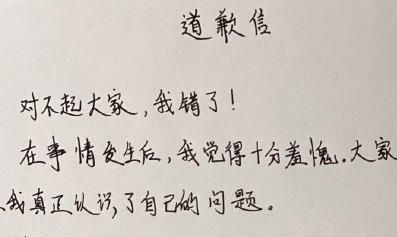 道歉信
对不起大家，我错了！
在事情发生后，我觉得十分羞愧。大家
我真正认识了自己的问题。